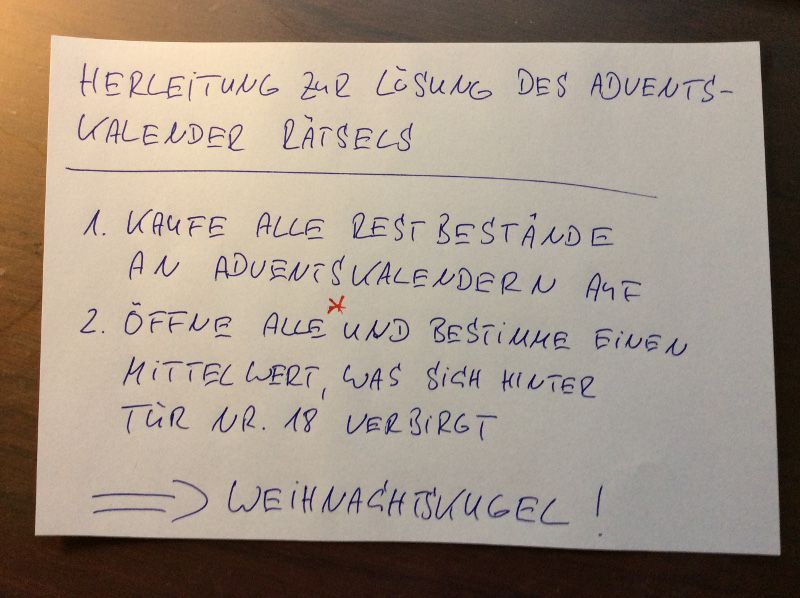 HERLEITUNG ZUR LÖSUNG DES ADVENTS-
KALENDER RÄTSELS
1. KAUFE ALLE RESTBESTÄNDE
AN ADVENTSKALENDERN AUF
2. ÖFFNE ALLE* UND BESTIMME EINEN
MITTELWERT, WAS SICH HINTER
TÜR NR. 18 VERBIRGT
⟹ WEIHNACHTSKUGEL!